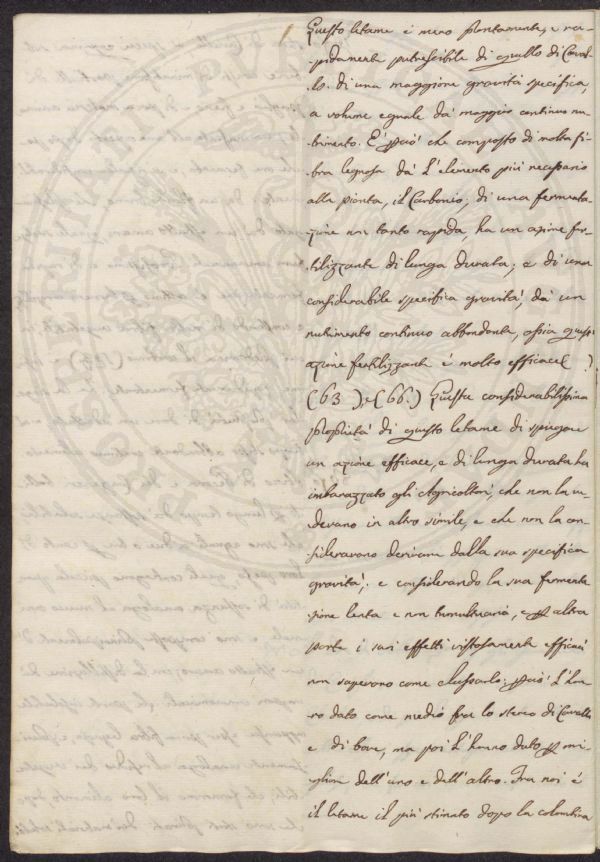 Questo letame è meno prontamente, e ra-
pidamente putrescibile di quello di Caval-
lo. di una maggiore gravità specifica,
a volume eguale dà maggior continuo nu-
trimento. E però che composto di molta fi-
bra legnosa dà l'elemento più necessario
alla pianta, il Carbonio; di una fermenta-
zione non tanto rapida, ha un azione fer-
tilizzante di lunga durata; e di una
considerabile specifica gravità, dà un
nutrimento continuo abbondante, ossia
azione fertilizzante è molto efficace( )
(63), e (66.) Questa considerabilissima
proprietà di questo letame di spiegare
un azione efficace, e di lunga durata ha
imbarazzato gli Agricoltori, che non la ve-
devano in altro simile, e che non la con-
sideravano derivare dalla sua specifica
gravità; e considerando la sua fermenta
zione lenta e non tumultuaria, e per altra
parte i suoi effetti vistosamente efficaci
non sapevano come classarlo; però l'han-
no dato come medio fra lo sterco di Cavallo
e di bove, ma poi l'hanno dato per mi-
gliore dell'uno e dell'altro. Fra noi è
il letame il più stimato dopo la colombina